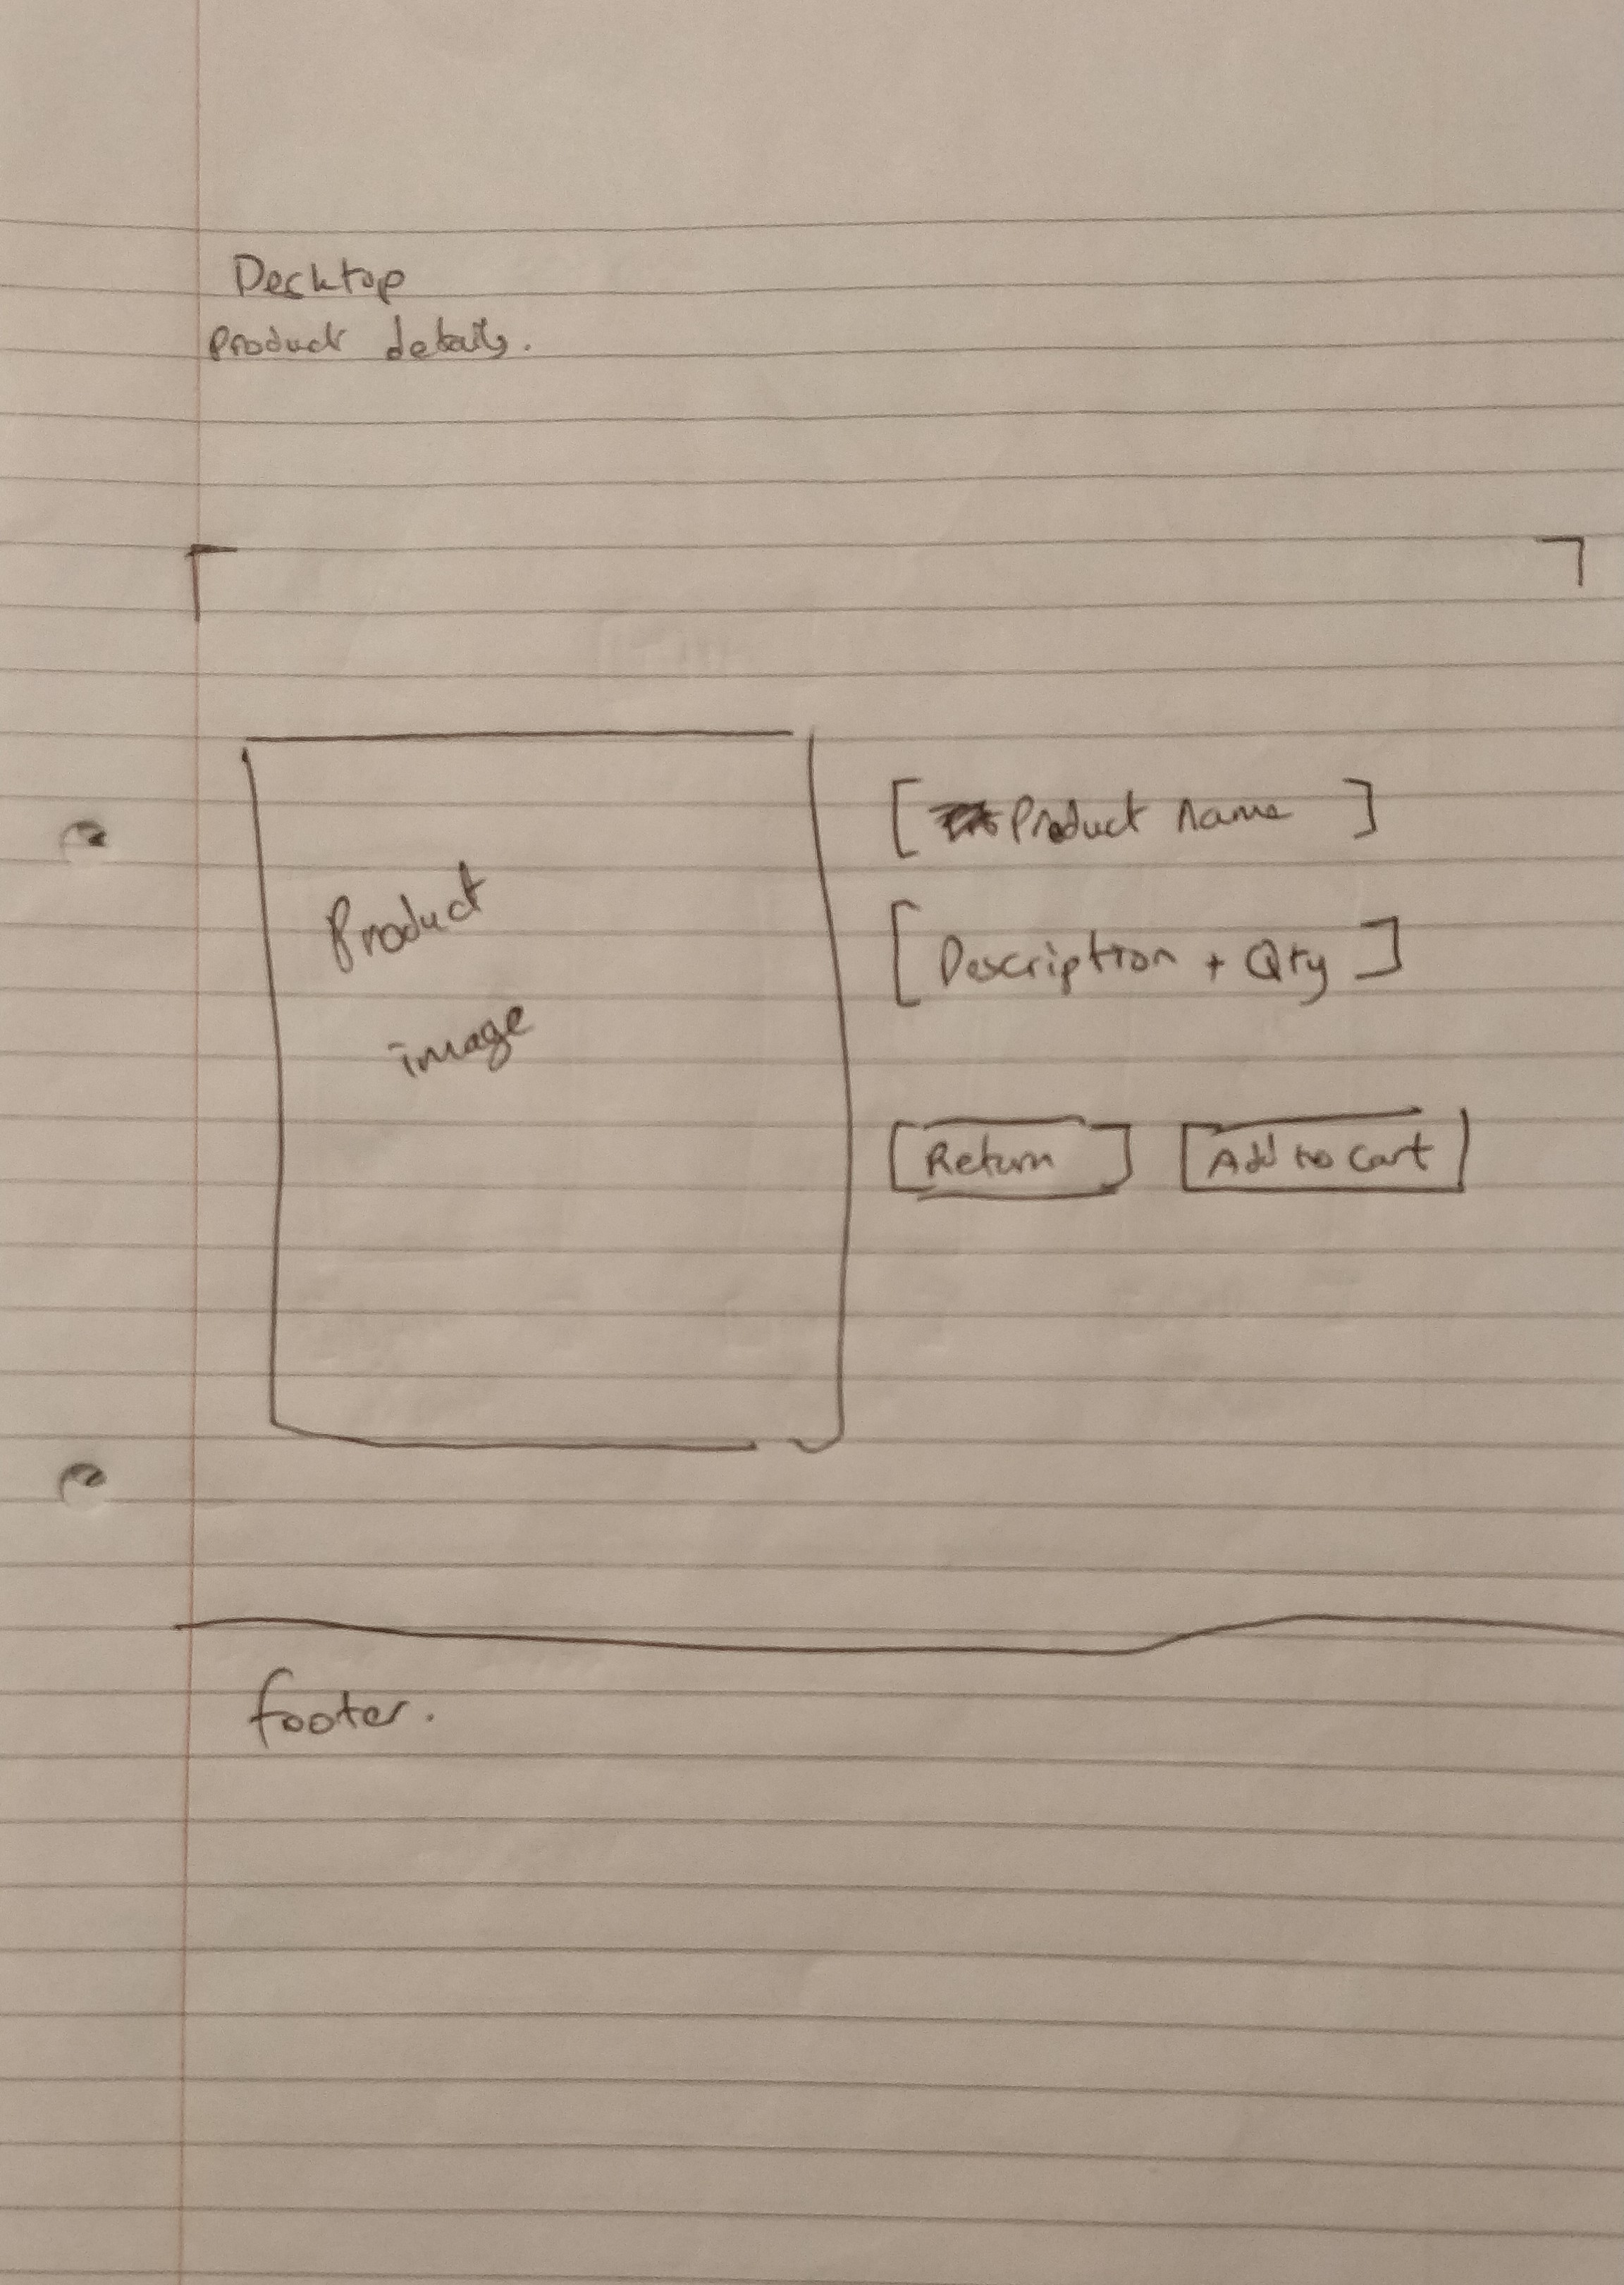 Decktop
Product details.
Product
image
[ Product name ]
[ Description + Qty ]
Return
Add to cart
footer.